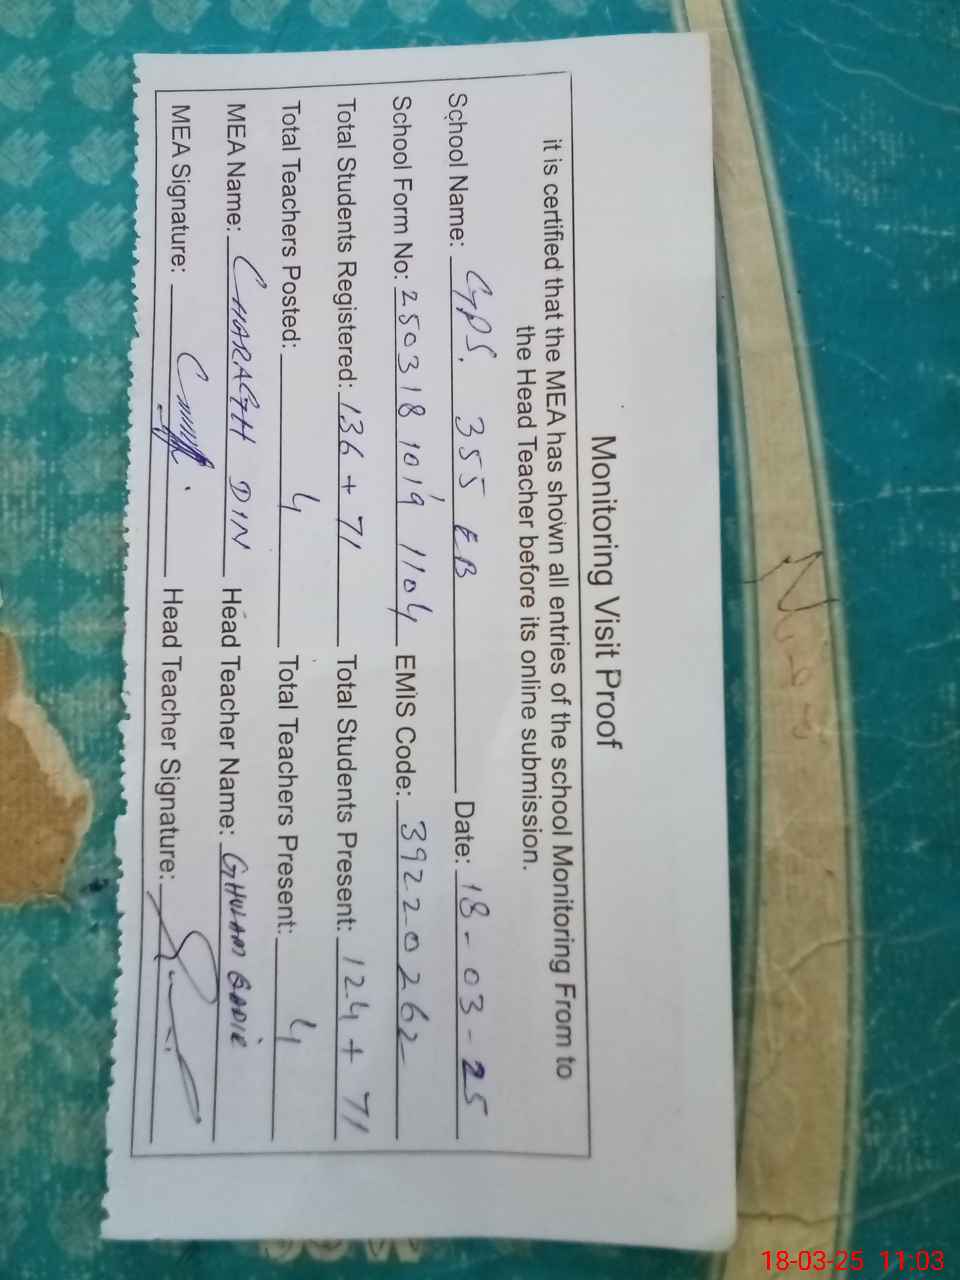 Monitoring Visit Proof
it is certified that the MEA has shown all entries of the school Monitoring From to
the Head Teacher before its online submission.
School Name: GPS. 355 EB Date: 18-03-25
School Form No: 250318 1019 1104 EMiS Code: 39220262
Total Students Registered: 136 + 71 Total Students Present: 124 + 71
Total Teachers Posted: 4 Total Teachers Present: 4
MEA Name: CHARAGH DIN Head Teacher Name: GHULAM QADIR
MEA Signature: Head Teacher Signature:
18-03-25 11:03